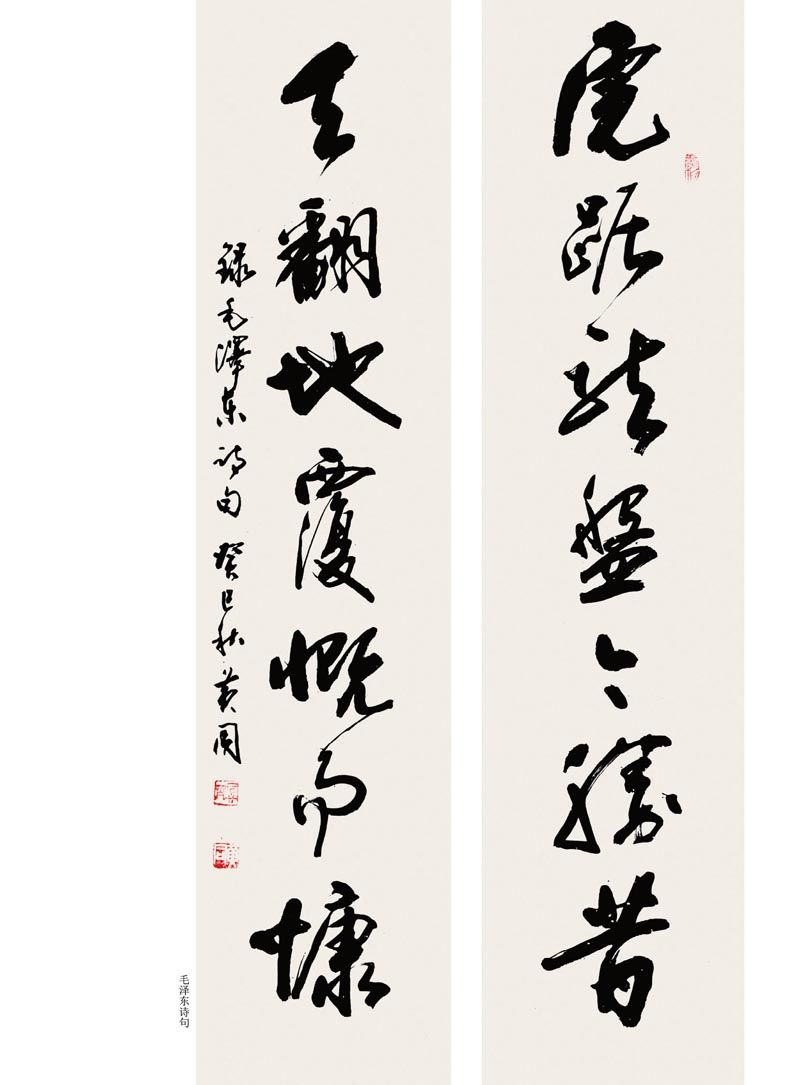 虎踞龙盘今勝昔
天翻地覆慨而慷
録毛澤东诗句 癸巳秋 黄同
毛泽东诗句